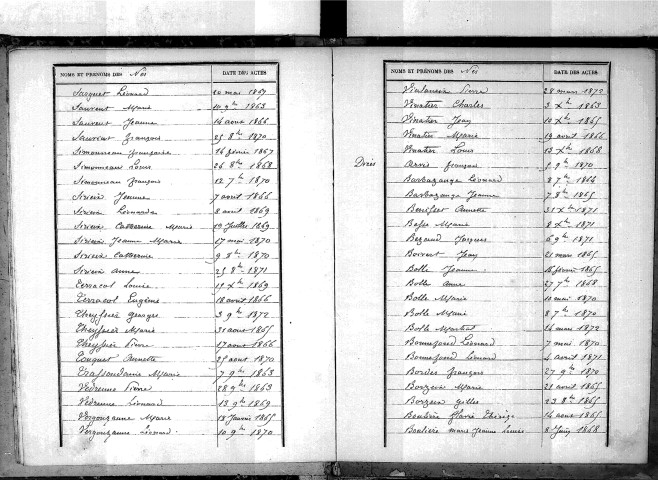 NOMS ET PRÉNOMS DES Nés DATE DES ACTES
Sasquet Léonard 20 mai 1867
Laurent Marie 10 9bre 1863
Laurent Jeanne 14 aout 1866
Laurent François 25 8bre 1870
Simonneau françoise 26 février 1867
Simonneau Louis 26 8bre 1868
Simonneau François 12 7bre 1870
Sirieix Jeanne 7 avril 1866
Sirieix Léonarde 8 avril 1869
Sirieix Catherine Marie 29 juillet 1869
Sirieix Jeanne Marie 17 mai 1870
Sirieix Catherine 9 8bre 1870
Sirieix Anne 25 8bre 1871
Terracol Louise 19 Xbre 1869
Terracol Eugène 18 avril 1866
Theyssier Georges 3 9bre 1872
Theyssier Marie 31 aout 1865
Theyssier Pierre 17 aout 1866
Touquet Annette 25 aout 1870
Trassoudaine Marie 7 9bre 1863
Vedrenne Pierre 28 9bre 1863
Vedrenne Léonard 13 9bre 1869
Vergonzanne Marie 18 Janvier 1865
Vergonzanne Léonard 10 9bre 1870
NOMS ET PRÉNOMS DES Nés DATE DES ACTES
Pierre 28 mars 1872
Vinatier Charles 3 Xbre 1863
Vinatier Jean 10 Xbre 1865
Vinatier Marie 19 avril 1866
Vinatier Louis 13 Xbre 1868
Arvis françois 9 9bre 1870
Barbazange Léonard 8 7bre 1864
Barbazange Jeanne 7 8bre 1865
Annette 31 Xbre 1871
Marie 8 Xbre 1871
Jacques 6 9bre 1871
Boivent Jean 21 mars 1865
Bolle Jeanne 16 février 1865
Bolle Anne 27 7bre 1868
Bolle Marie 10 mai 1870
Bolle Marie 8 7bre 1870
Bolle Martial 14 mars 1872
Bonnefond Léonard 7 mai 1870
Bonnefond Léonard 4 avril 1871
Bordes françois 27 9bre 1870
Borzeix Marie 21 avril 1865
Borzeix Gilles 23 8bre 1865
Boulière 14 aout 1865
Boulière Marie Jeanne 8 Juin 1868